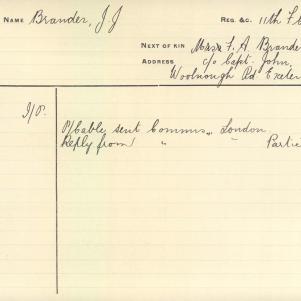 NAME Brander, J.J REG. &C. 11th F.
NEXT OF KIN Miss F. A. Brander
ADDRESS c/o Capt. John,
Woolnough Rd Exeter
I/P.
O/Cable sent Commns,, London
Reply from " Partic